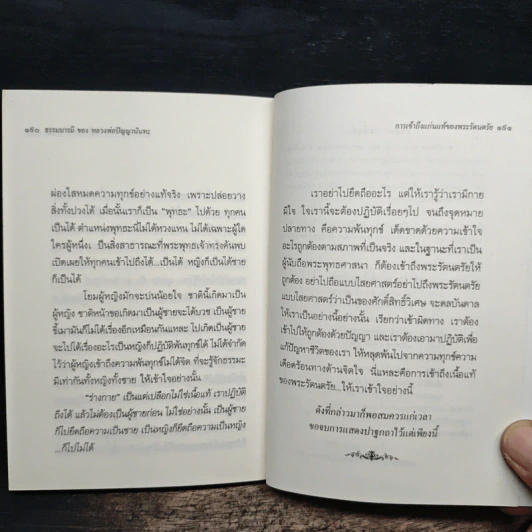 ๑๕๐ ธรรมบารมี ของ หลวงพ่อปัญญานันทะ
ผ่องใสหมดความทุกข์อย่างแท้จริง เพราะปล่อยวาง
สิ่งทั้งปวงได้ เมื่อนั้นเราก็เป็น “พุทธะ” ไปด้วย ทุกคน
เป็นได้ ตำแหน่งพุทธะนี่ไม่ได้หวงแหน ไม่ได้เฉพาะผู้ใด
ใครผู้หนึ่ง เป็นสิ่งสาธารณะที่พระพุทธเจ้าทรงค้นพบ
เปิดเผยให้ทุกคนเข้าไปถึงได้...เป็นได้ หญิงก็เป็นได้ชาย
ก็เป็นได้
โยมผู้หญิงมักจะบ่นน้อยใจ ชาตินี้เกิดมาเป็น
ผู้หญิง ชาติหน้าขอเกิดมาเป็นผู้ชายจะได้บวช เป็นผู้ชาย
ขี้เมามันก็ไม่ได้เรื่องอีกเหมือนกันแหละ ไปเกิดเป็นผู้ชาย
จะไปได้เรื่องอะไรเป็นผู้หญิงนี่ก็ปฏิบัติพ้นทุกข์ได้ ไม่ได้จำกัด
ไว้ว่าผู้หญิงเข้าถึงความพ้นทุกข์ไม่ได้ จิตที่จะรู้จักธรรมะ
มีเท่ากันทั้งหญิงทั้งชาย ให้เข้าใจอย่างนั้น
“ร่างกาย” เป็นแต่เปลือกไม่ใช่เนื้อแท้ เราปฏิบัติ
ถึงได้ แล้วไม่ต้องเป็นผู้ชายก่อน ไม่ใช่อย่างนั้น เป็นผู้ชาย
ก็ไปยึดถือความเป็นชาย เป็นหญิงก็ยึดถือความเป็นหญิง
...ก็ไปไม่ได้
การเข้าถึงแก่นแท้ของพระรัตนตรัย ๑๕๑
เราอย่าไปยึดถืออะไร แต่ให้เรารู้ว่าเรามีกาย
มีใจ ใจเรานี้จะต้องปฏิบัติเรื่อยๆไป จนถึงจุดหมาย
ปลายทาง คือความพ้นทุกข์ เด็ดขาดด้วยความเข้าใจ
อะไรถูกต้องตามสภาพที่เป็นจริง และในฐานะที่เราเป็น
ผู้นับถือพระพุทธศาสนา ก็ต้องเข้าถึงพระรัตนตรัยให้
ถูกต้อง อย่าไปถือแบบไสยศาสตร์อย่าไปถึงพระรัตนตรัย
แบบไสยศาสตร์ว่าเป็นของศักดิ์สิทธิ์วิเศษ จะดลบันดาล
ให้เราเป็นอย่างนั้นอย่างนี้ เรียกว่าเข้าผิดทาง เราต้อง
เข้าไปให้ถูกต้องด้วยปัญญา และเราต้องเอามาปฏิบัติเพื่อ
แก้ปัญหาชีวิตของเรา ให้หลุดพ้นไปจากความทุกข์ความ
เดือดร้อนทางด้านจิตใจ นี่แหละคือการเข้าถึงเนื้อแท้
ของพระรัตนตรัย...ให้เราเข้าใจอย่างนี้
ดังที่กล่าวมาก็พอสมควรแก่เวลา
ขอจบการแสดงปาฐกถาไว้แต่เพียงนี้